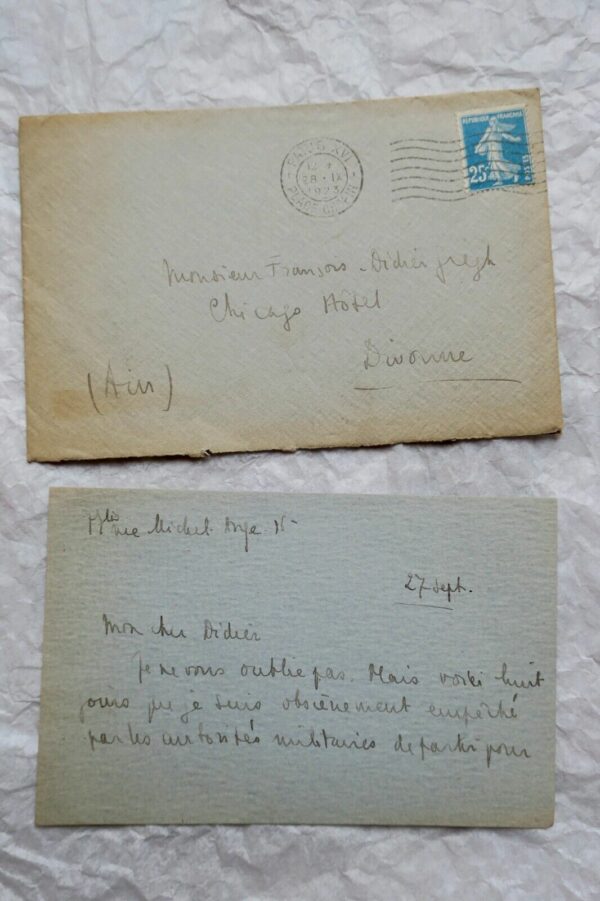 PARIS XVI
12
28 · IX
1923
PLACE CHOPIN
REPUBLIQUE FRANÇAISE
25c
Monsieur François-Didier Gregh
Chicago Hôtel
Divonne
(Ain)
rue Michel Ange 16
27 sept.
Mon cher Didier
Je ne vous oublie pas. Mais voici huit
jours que je suis obscènement empêché
par les autorités militaires de partir pour